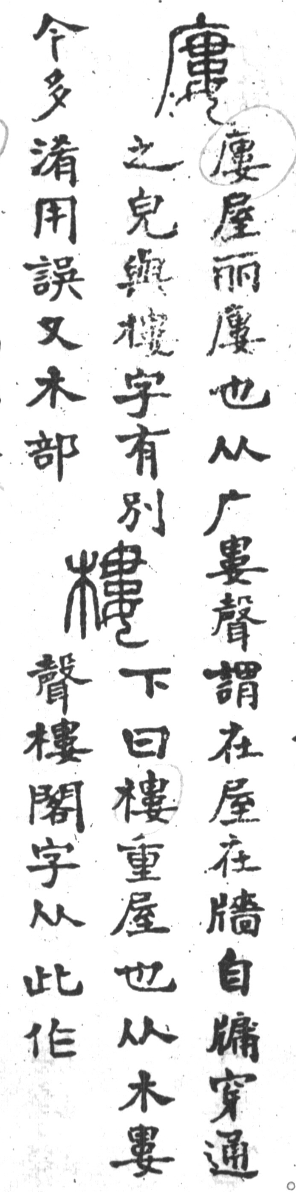 廔 廔屋丽廔也从广婁聲謂在屋在牆自牖穿通
之皃與樓字有別 樓 下曰樓重屋也从木婁
今多淆用誤又木部 聲樓閣字从此作